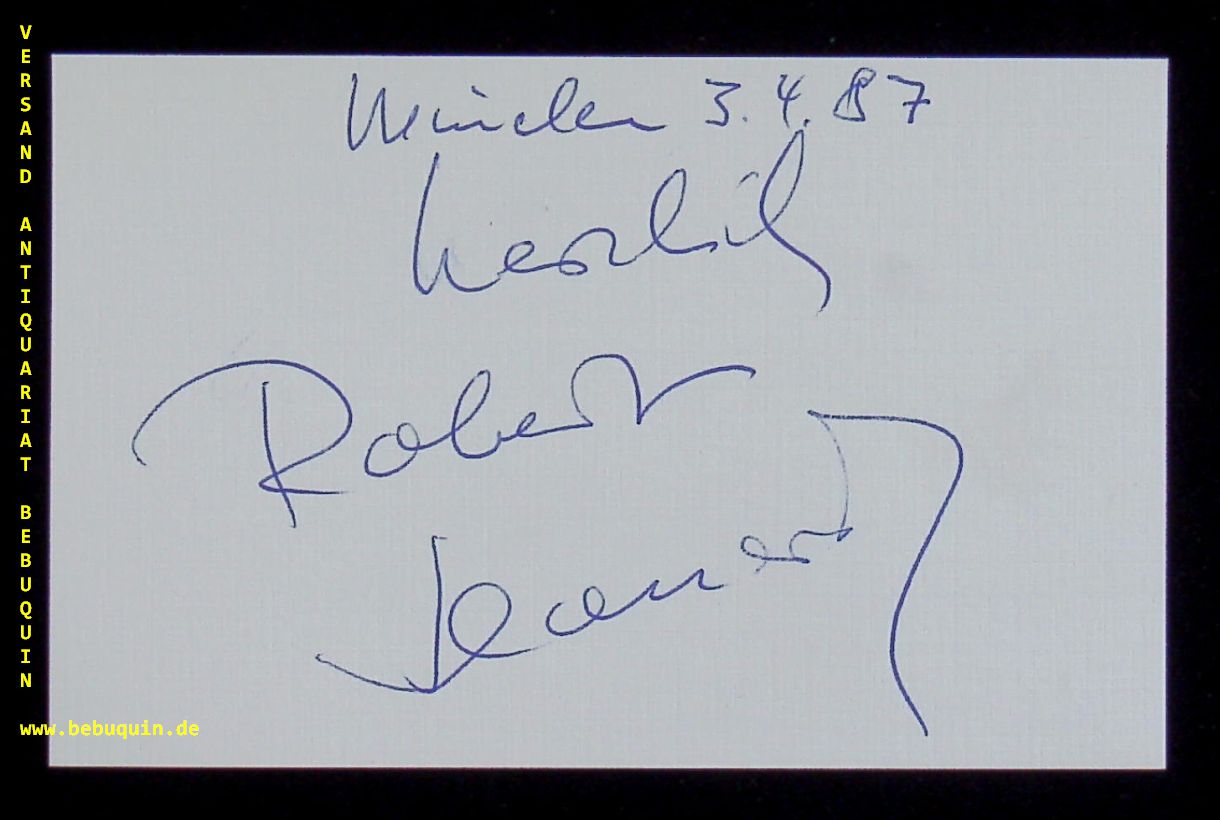 VERSAND ANTIQUARIAT BEBUQUIN
www.bebuquin.de
München 3.4.87
herzlich
Robert